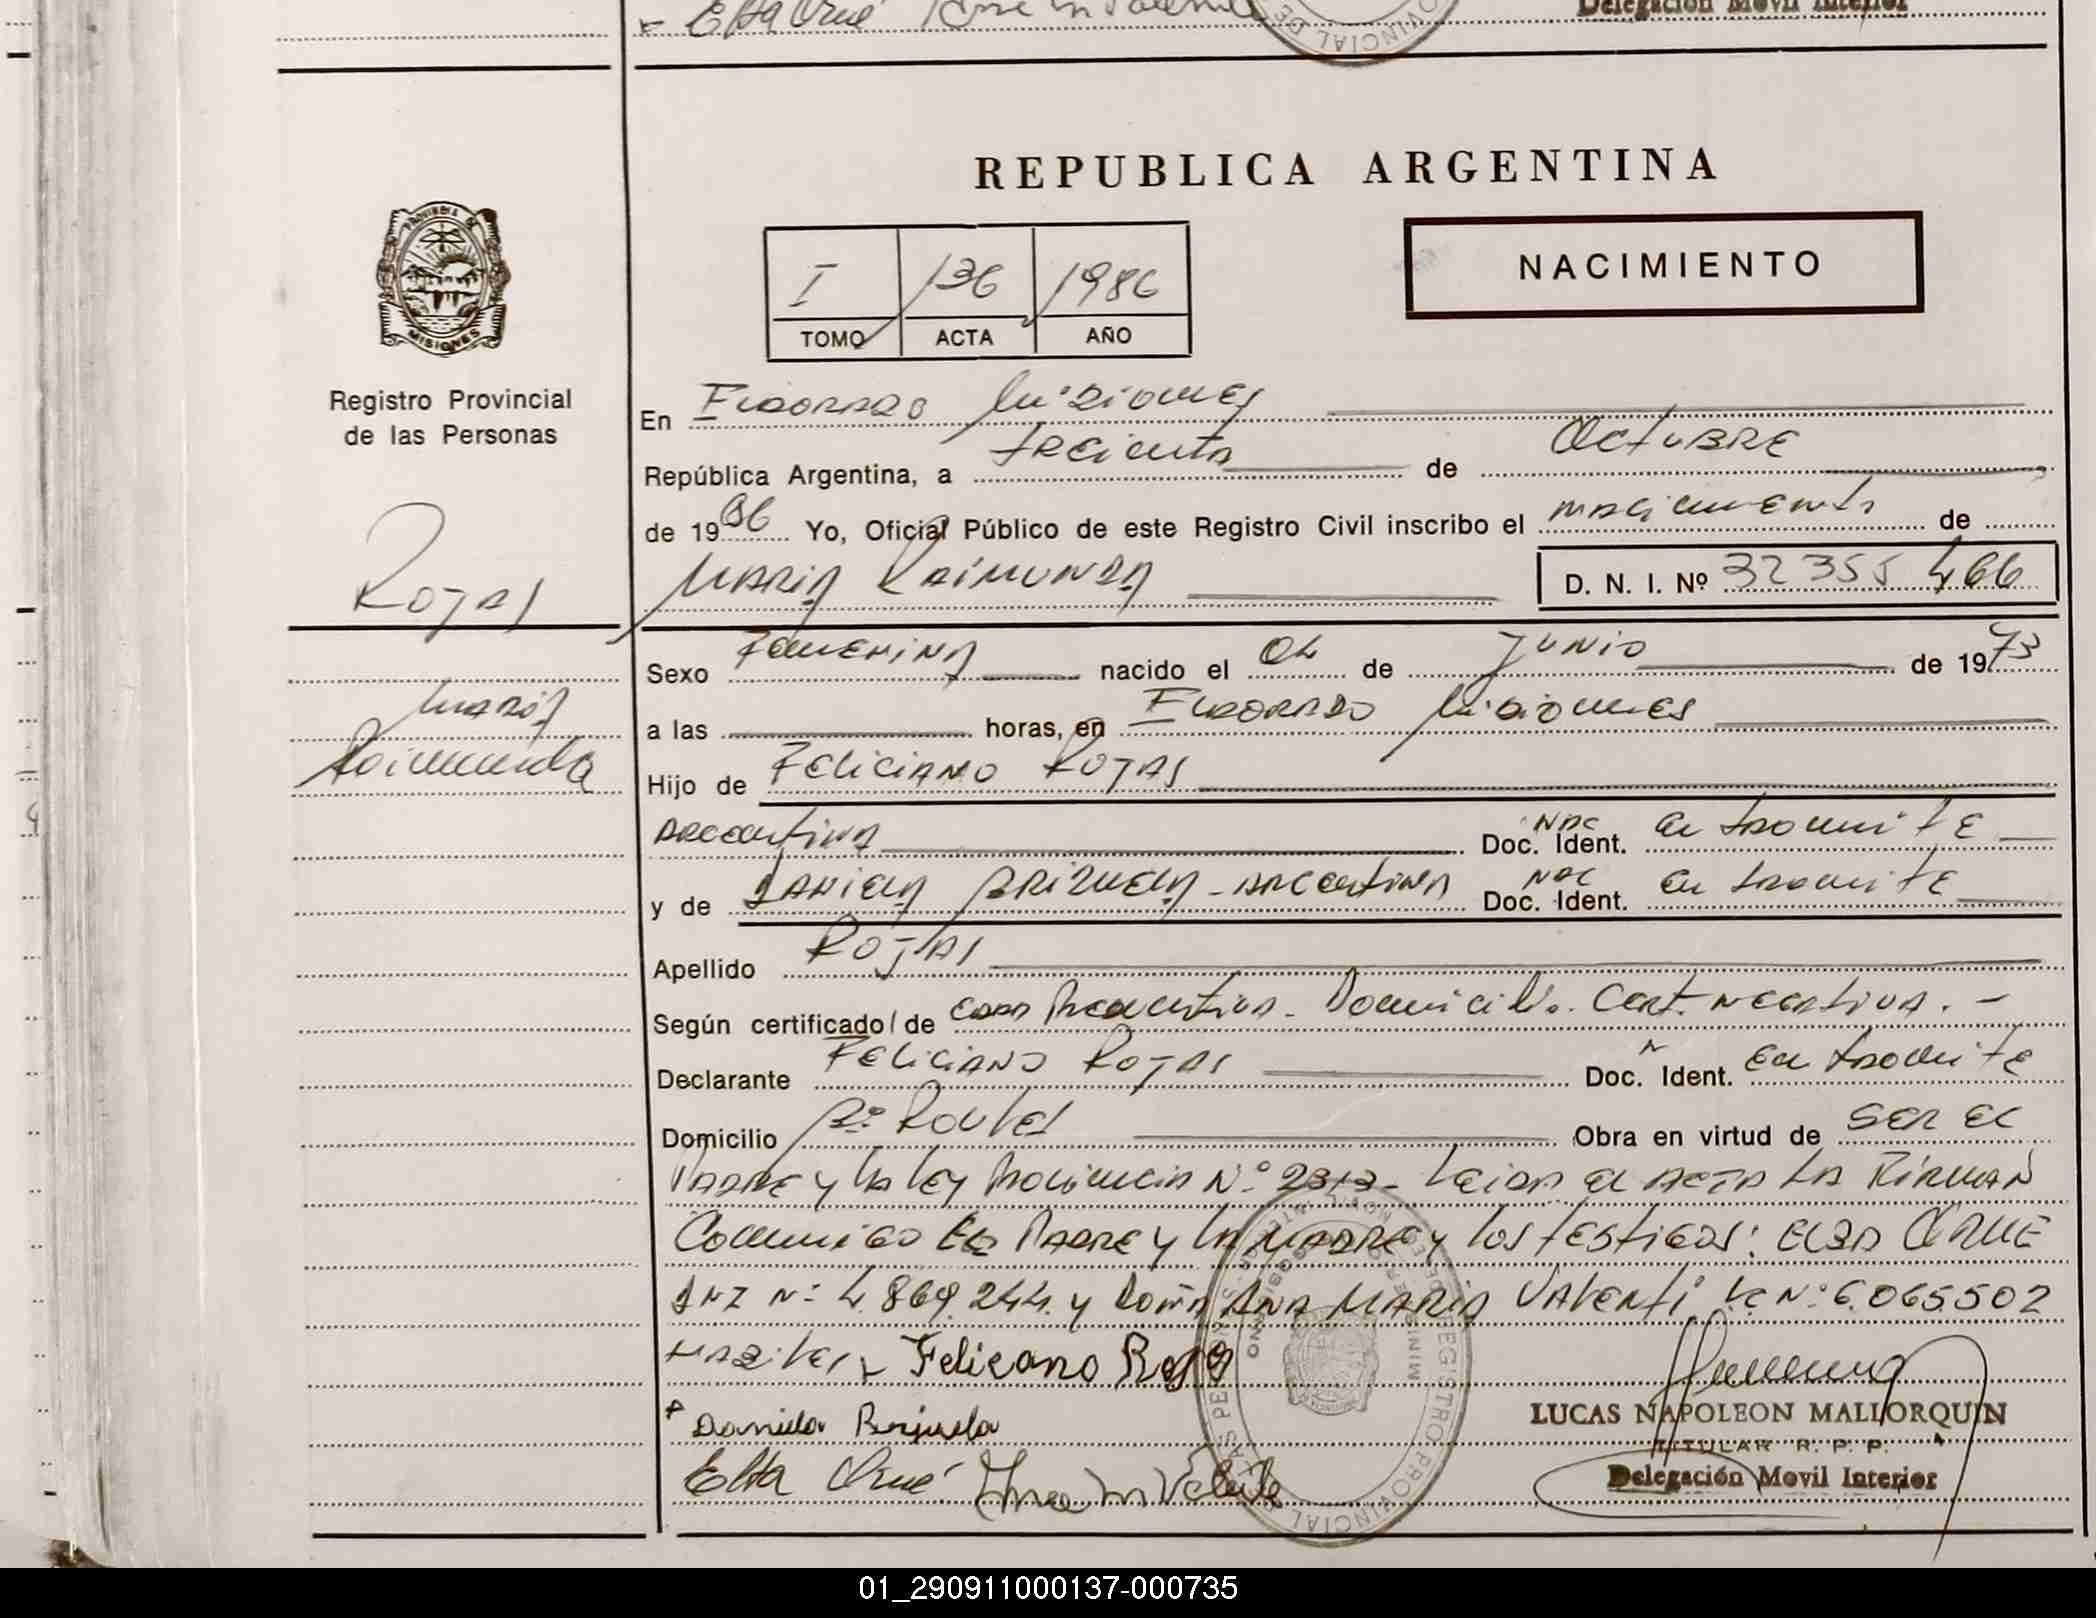 Elsa Orué
PROVINCIAL DE
Delegación Movil Interior
REPUBLICA ARGENTINA
NACIMIENTO
I 136 1986
TOMO ACTA AÑO
PROVINCIA DE
MISIONES
Registro Provincial
de las Personas
Rojas
Maria
Raimunda
En Eldorado Misiones
República Argentina, a treinta de Octubre
de 1986 Yo, Oficial Público de este Registro Civil inscribo el nacimiento de
Maria Raimunda D. N. I. Nº 32 355 466
Sexo Femenina nacido el 04 de Junio de 1973
a las horas, en Eldorado Misiones
Hijo de Feliciano Rojas
Argentina Doc. Ident. Nac en tramite
y de Daniela Brizuela - Argentina Doc. Ident. Nac en tramite
Apellido Rojas
Según certificado/de Domicilio. Cert. Negativa. -
Declarante Feliciano Rojas Doc. Ident. en tramite
Domicilio Obra en virtud de ser el
Padre y la ley Provincia Nº 2313 - Leida el acta la Firman
Conmigo el Padre y la Madre y los testigos: Elsa Orue
DNI Nº 4.869.244 y Doña Ana Maria Valenti LC Nº 6.065.502
Feliceano Roja
Daniela Brisuela
Elsa Orué Ana M Valenti
REGISTRO PROVINCIAL DE LAS PERSONAS
LUCAS NAPOLEON MALLORQUIN
TITULAR R. P. P.
Delegación Movil Interior
01_290911000137-000735